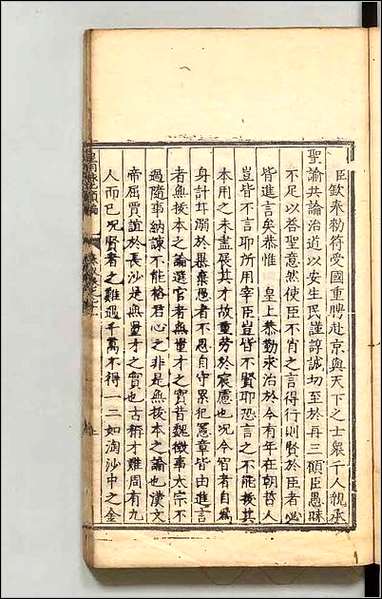 臣欽奉勅符受國重聘赴京與天下之士衆千人親承
聖諭共論治道以安生民謹諄誠切至於再三顧臣愚昧
不足以答聖意然使臣不肖之言得行則賢於臣者必
皆進言矣恭惟 皇上恭勤求治於今有年在朝哲人
豈皆不言耶所用宰臣豈皆不賢耶恐言之不能披其
本用之未盡展其才故重勞於宸慮也况今官者自爲
身計耳溺於暴棄愚者不忍自守累犯憲章皆由進言
者無披本之論選官者無世才之實昔魏徵事太宗不
過隨事納諫不能格君心之非是無披本之論也漢文
帝屈賈誼於長沙是無世才之實也古稱才難周有九
人而已况賢者之難遇千萬不得一二如淘沙中之金